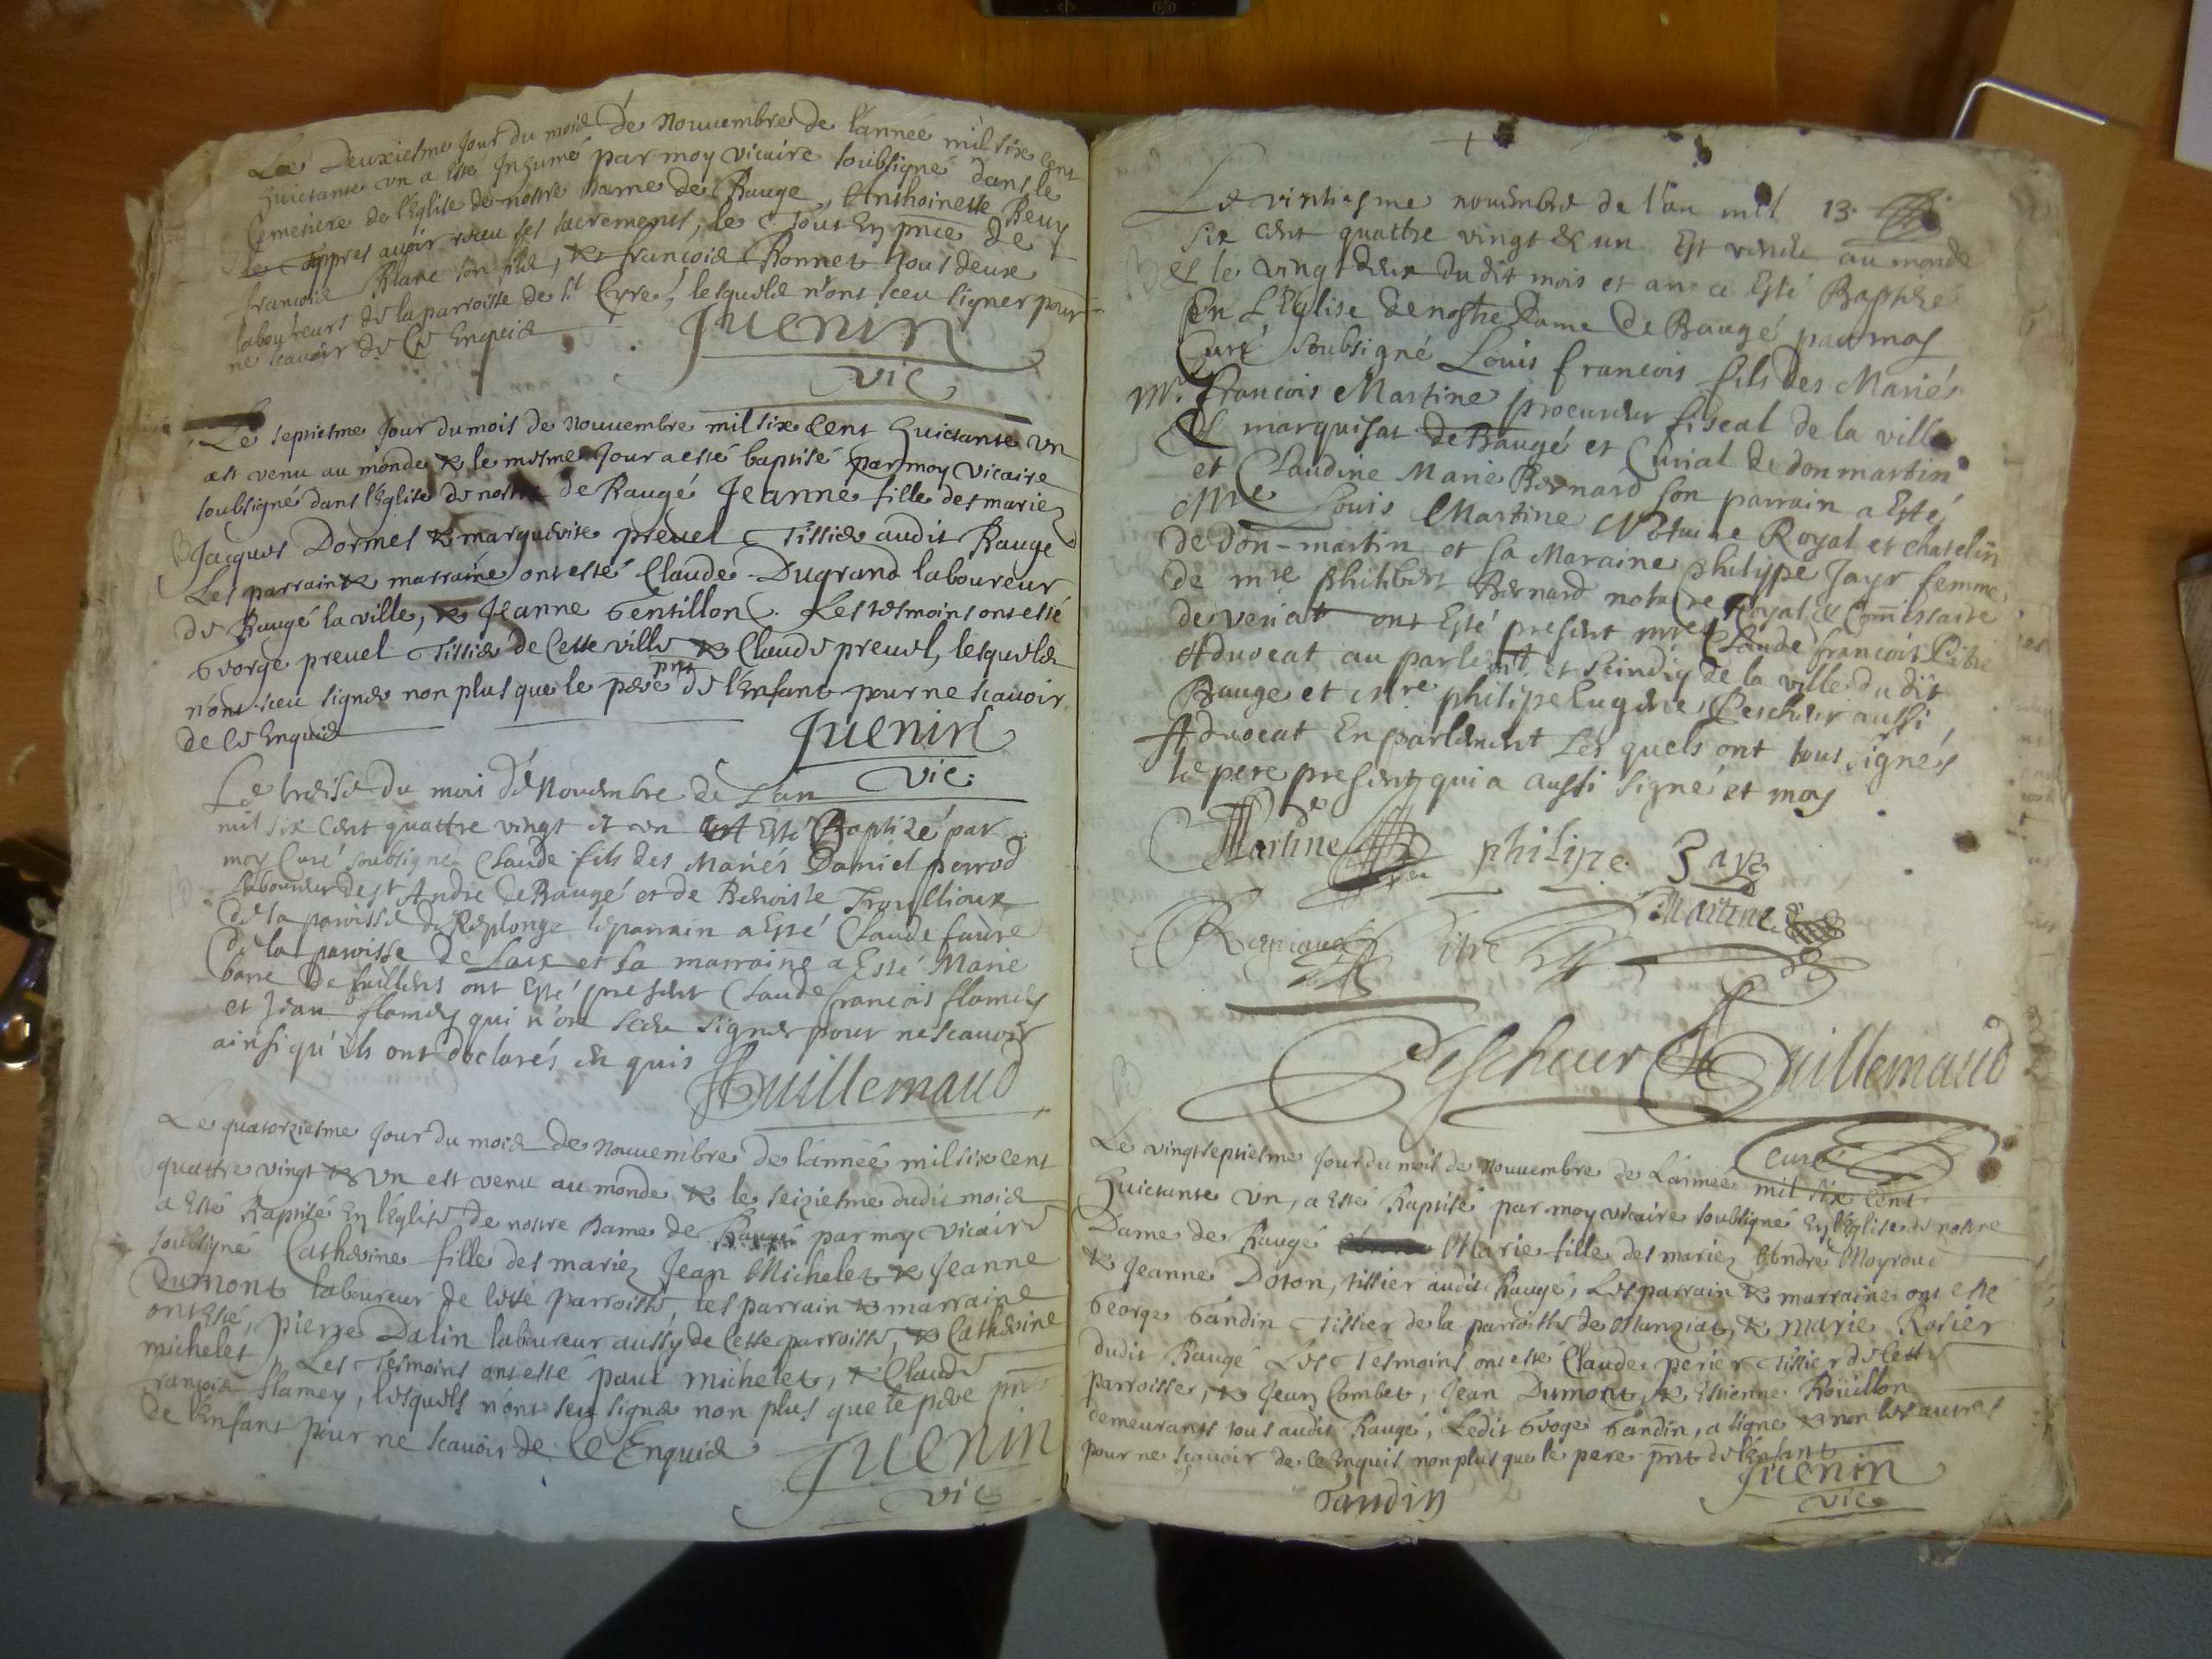 Le Deuxiesme Jour du mois de Nouuembre de l'année mil six cent
huictante vn a esté Inhumé par moy vicaire soubsigné dans le
Cemetiere de l'Eglise de nostre Dame de Baugé, Anthoinette Reuy
le appres auoir receu ses sacrements, le Tout En pnce de
francois Blanc son fils, & francois Bonnet tous deux
laboureurs de la parroisse de St Cyre, lesquels n'ont sceu signer pour
ne scauoir de Ce Enquis
Juenin
vic
Le septiesme Jour du mois de Nouuembre mil six Cent huictante vn
est venu au monde & le mesme Jour a esté baptisé par moy vicaire
soubsigné dans l'Eglise de nostre de Baugé Jeanne fille des mariez
Jacques Dormel & marguerite preuel Tissier audit Baugé
Les parrain & marraine ont esté Claude Dugrand laboureur
de Baugé la ville, & Jeanne Gentillon. Les tesmoins ont esté
George preuel Tissier de Cette ville & Claude preuel, lesquels
n'ont sceu signer non plus que le pere pnt de l'Enfant pour ne scauoir
de Ce Enquis
Juenin
vic:
Le treise du mois de Nouembre de L'an
mil six cent quattre vingt et vn Esté Baptizé par
moy Curé soubsigné Claude fils des Mariés Daniel perrod
Laboureur de st Andre de Baugé et de Benoiste Trouillioux
de la paroisse de Replonge le parrain a Esté Claude faure
de la paroisse de Laix et sa marraine a Esté Marie
barre de fuillens ont Esté present Claude francois flamey
et Jean flamey qui n'ont sceu signer pour ne scauoir
ainsi qu'ils ont declarés en quis
Guillemaud
Le quatorziesme Jour du mois de Nouuembre de l'année mil six cent
quattre vingt & vn est venu au monde & le seiziesme dudit mois
a Esté Baptisé En l'Eglise de nostre Dame de Baugé par moy Vicaire
soubsigné Catherine fille des mariez Jean Michelet & Jeanne
Dumont laboureur de Cette parroisse, les parrain & marraine
ont Esté, Pierre Dalin laboureur aussy de Cette parroisse, & Catherine
michelet, Les Tesmoins ont esté paul michelet, & Claude
rançois flamey, lesquels n'ont sceu signer non plus que le pere pnt
de l'Enfant pour ne scauoir de Ce Enquis
Juenin
vic
13.
Le vintiesme nouembre de l'an mil
six cent quattre vingt & un Est venu au monde
et le vingt deux du dit mois et an a Esté Baptisé
En L'Eglise de nostre Dame de Baugé par moy
Curé soubsigné Louis francois fils des Mariés
Mr. francois Martine procureur fiscal de la ville
& marquisat de Baugé et Curial de donmartin
et Claudine Marie Bernard son parrain a Esté
Mre Louis Martine Notaire Royal et chatelin
de don-martin et sa Maraine philippe Jayr femme
de mre philibert Bernard notaire Royal & Commissaire
de veriat ont Esté present mre Claude francois
Aduocat au parlemt et scindiq de la ville du dit
Bauge et mre philipe Eugene Pescheur aussi
Aduocat En parlement Les quels ont tous signés
le pere present qui a aussi signé et moy
Martine philipe Jayr
Martine
Pescheur Guillemaud
Curé
Le vingtseptiesme Jour du mois de Nouuembre de L'année mil six Cent
huictante vn, a esté Baptisé par moy vicaire soubsigné En l'Eglise de nostre
Dame de Baugé Marie fille des mariez André Moyroud
& Jeanne Doton, tissier audit Baugé, Les parrain & marraine ont esté
George Gandin Tissier de la parroisse de Manziat, & marie Rosier
dudit Baugé Les Tesmoins ont esté Claude perier Tissier de Cette
parroisse, & Jean Combet, Jean Dumont, & Estienne Roüillon
demeurants tous audit Baugé, Ledit George Gandin, a signé & non les autres
pour ne scauoir de Ce Enquis non plus que le pere pnt de l'Enfant
Gandin
Juenin
vic